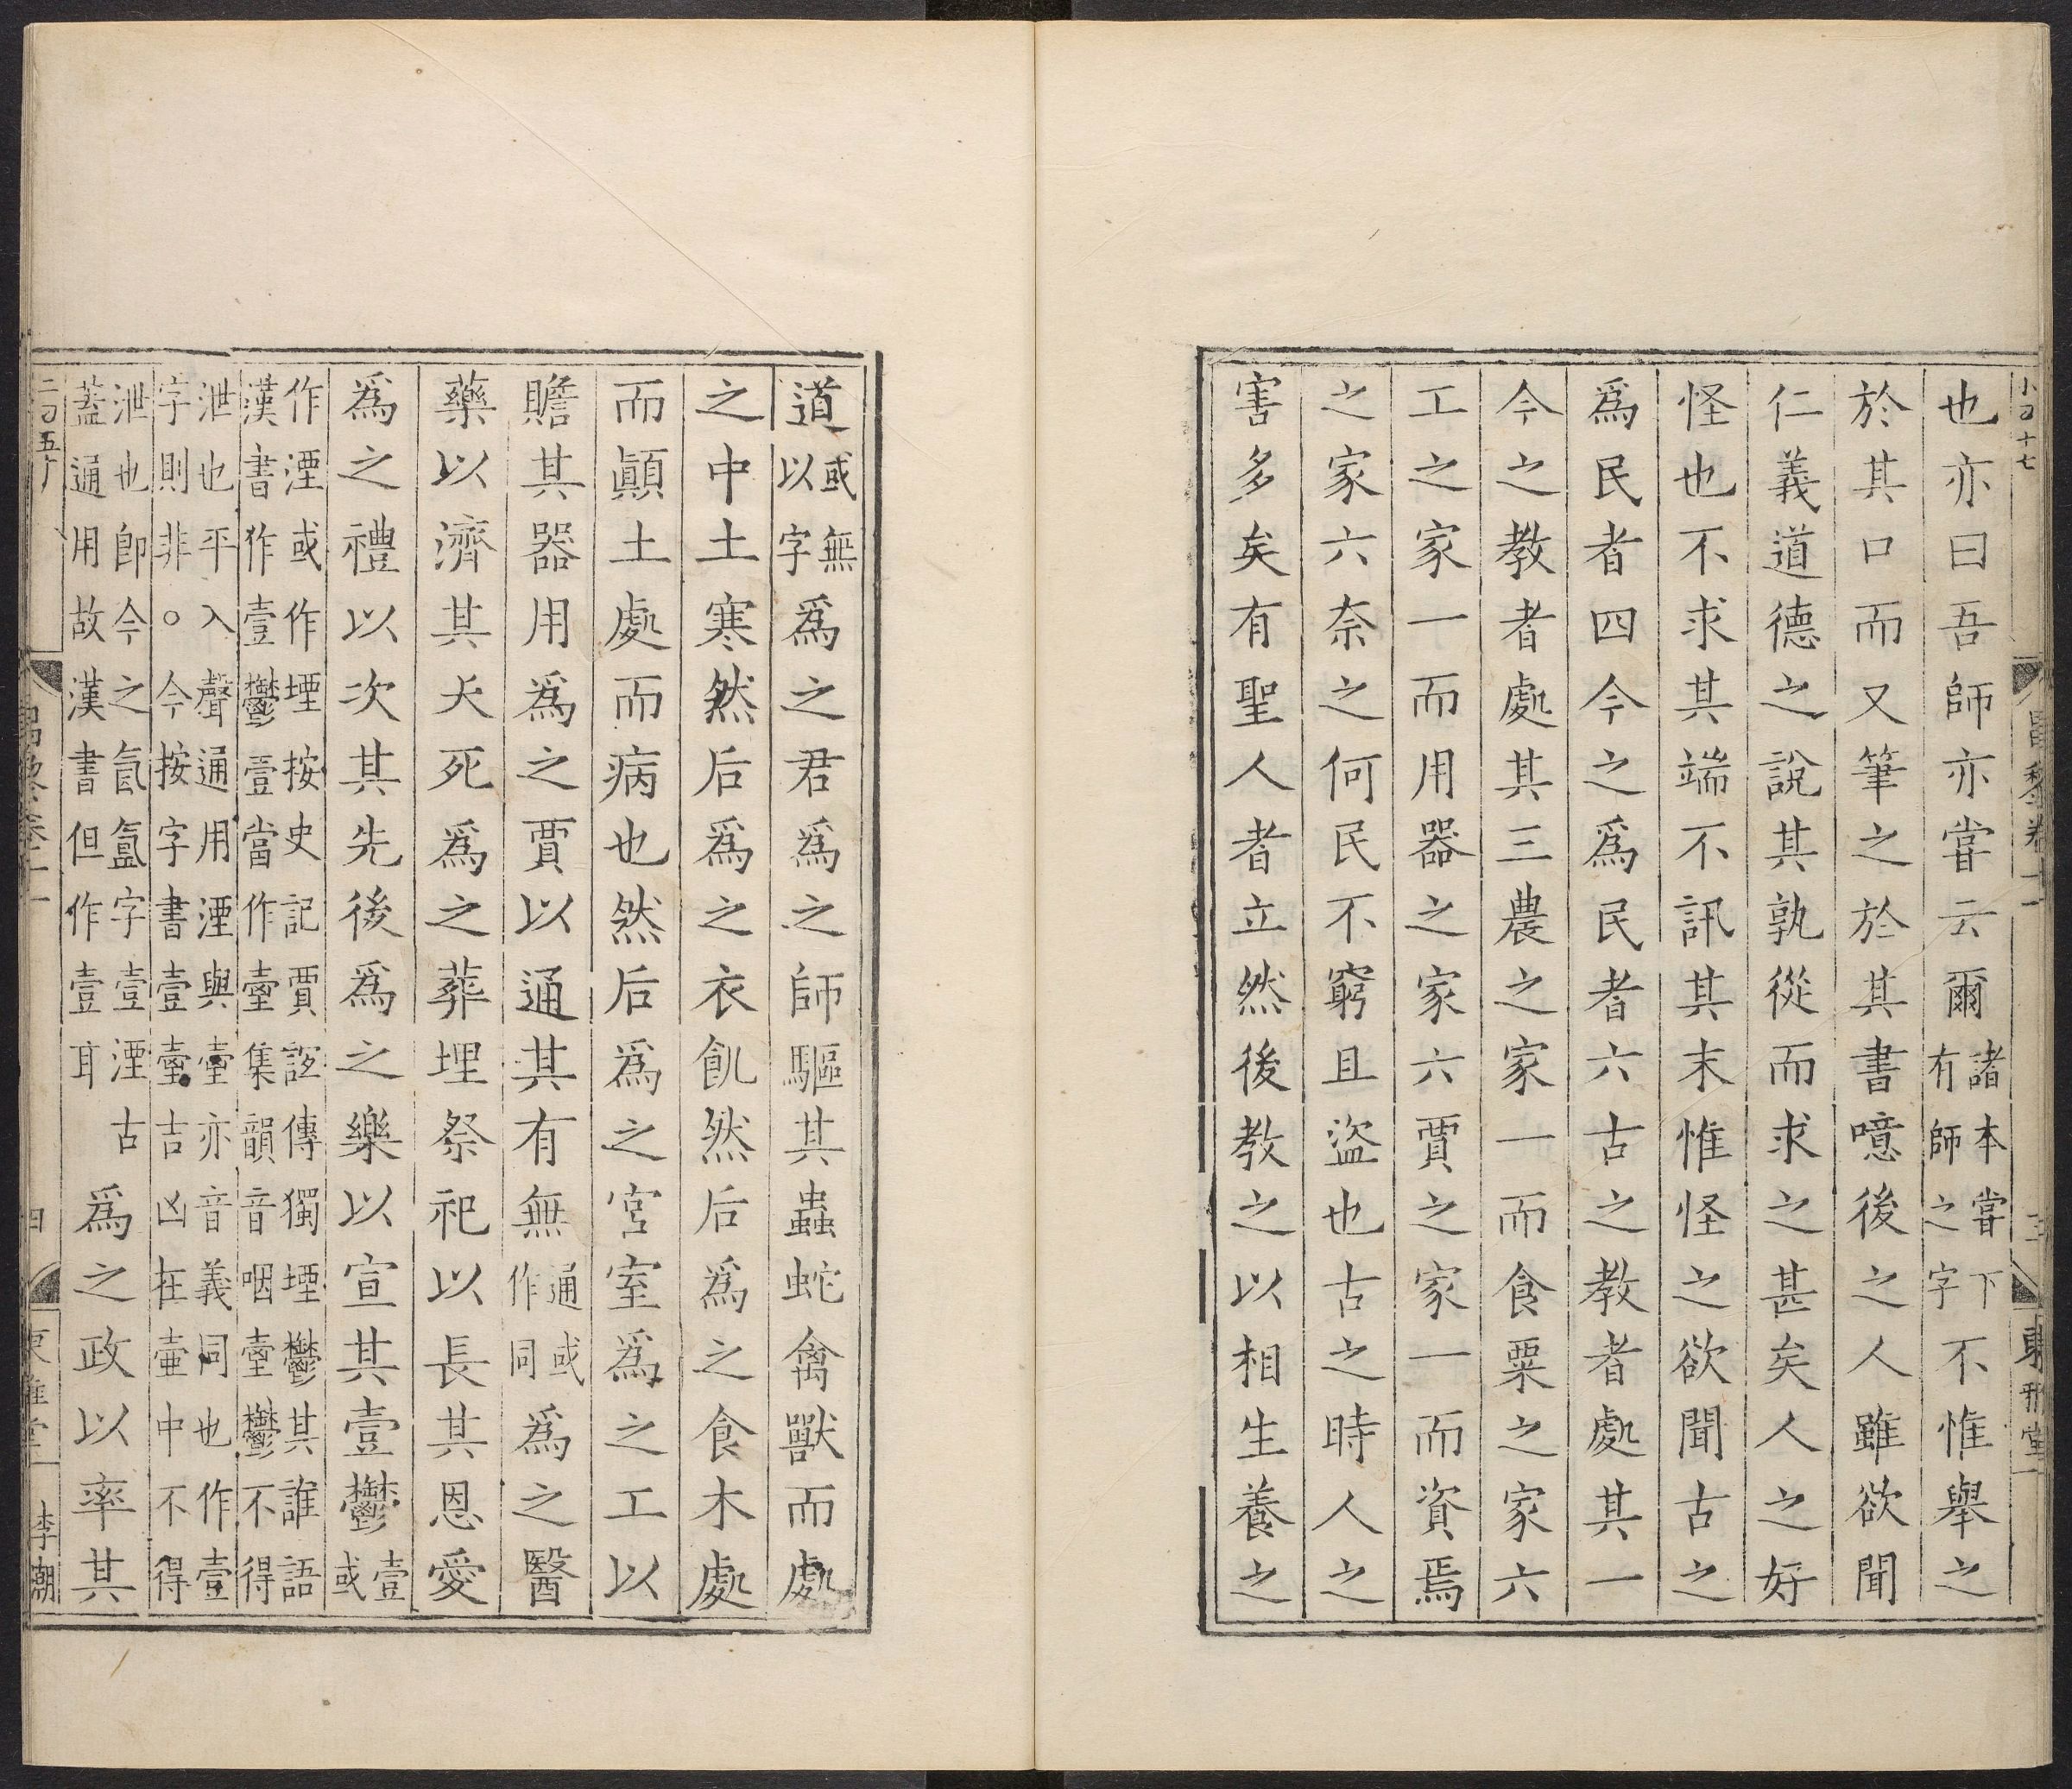 小四十七 昌黎卷十一 三
也亦曰吾師亦嘗云爾諸本嘗下有師之字不惟舉之
於其口而又筆之於其書噫後之人雖欲聞
仁義道德之說其孰從而求之甚矣人之好
怪也不求其端不訊其末惟怪之欲聞古之
爲民者四今之爲民者六古之教者處其一
今之教者處其三農之家一而食粟之家六
工之家一而用器之家六賈之家一而資焉
之家六奈之何民不窮且盜也古之時人之
害多矣有聖人者立然後教之以相生養之
道或無以字爲之君爲之師驅其蟲蛇禽獸而處
之中土寒然后爲之衣飢然后爲之食木處
而顚土處而病也然后爲之宮室爲之工以
贍其器用爲之賈以通其有無通或作同爲之醫
藥以濟其夭死爲之葬埋祭祀以長其恩愛
爲之禮以次其先後爲之樂以宣其壹鬱壹或
作湮或作堙按史記賈誼傳獨堙鬱其誰語
漢書作壹鬱壹當作𡔷集韻音咽𡔷鬱不得
泄也平入聲通用湮與𡔷亦音義同也作壹
字則非○今按字書壹𡔷吉凶在壷中不得
泄也卽今之氤氳字壹湮古
蓋通用故漢書但作壹耳爲之政以率其
四 東雅堂 李潮